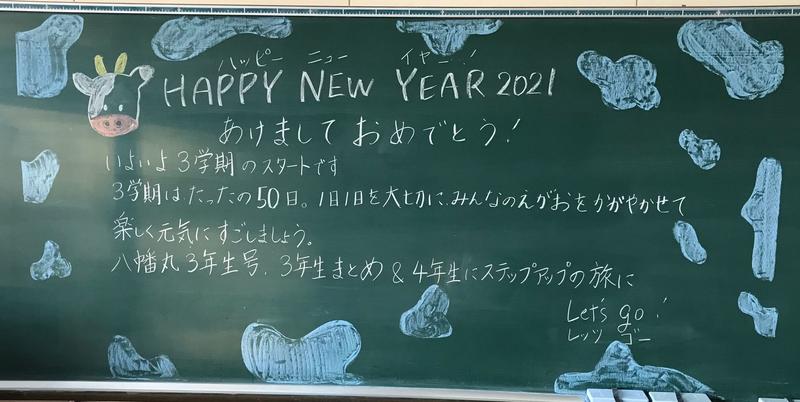 ハッピー ニュー イヤー!
HAPPY NEW YEAR 2021
あけまして おめでとう!
いよいよ3学期のスタートです
3学期はたったの50日。1日1日を大切に、みんなのえがおをかがやかせて
楽しく元気にすごしましょう。
八幡丸3年生号、3年生まとめ & 4年生にステップアップの旅に
Let's go!
レッツ ゴー